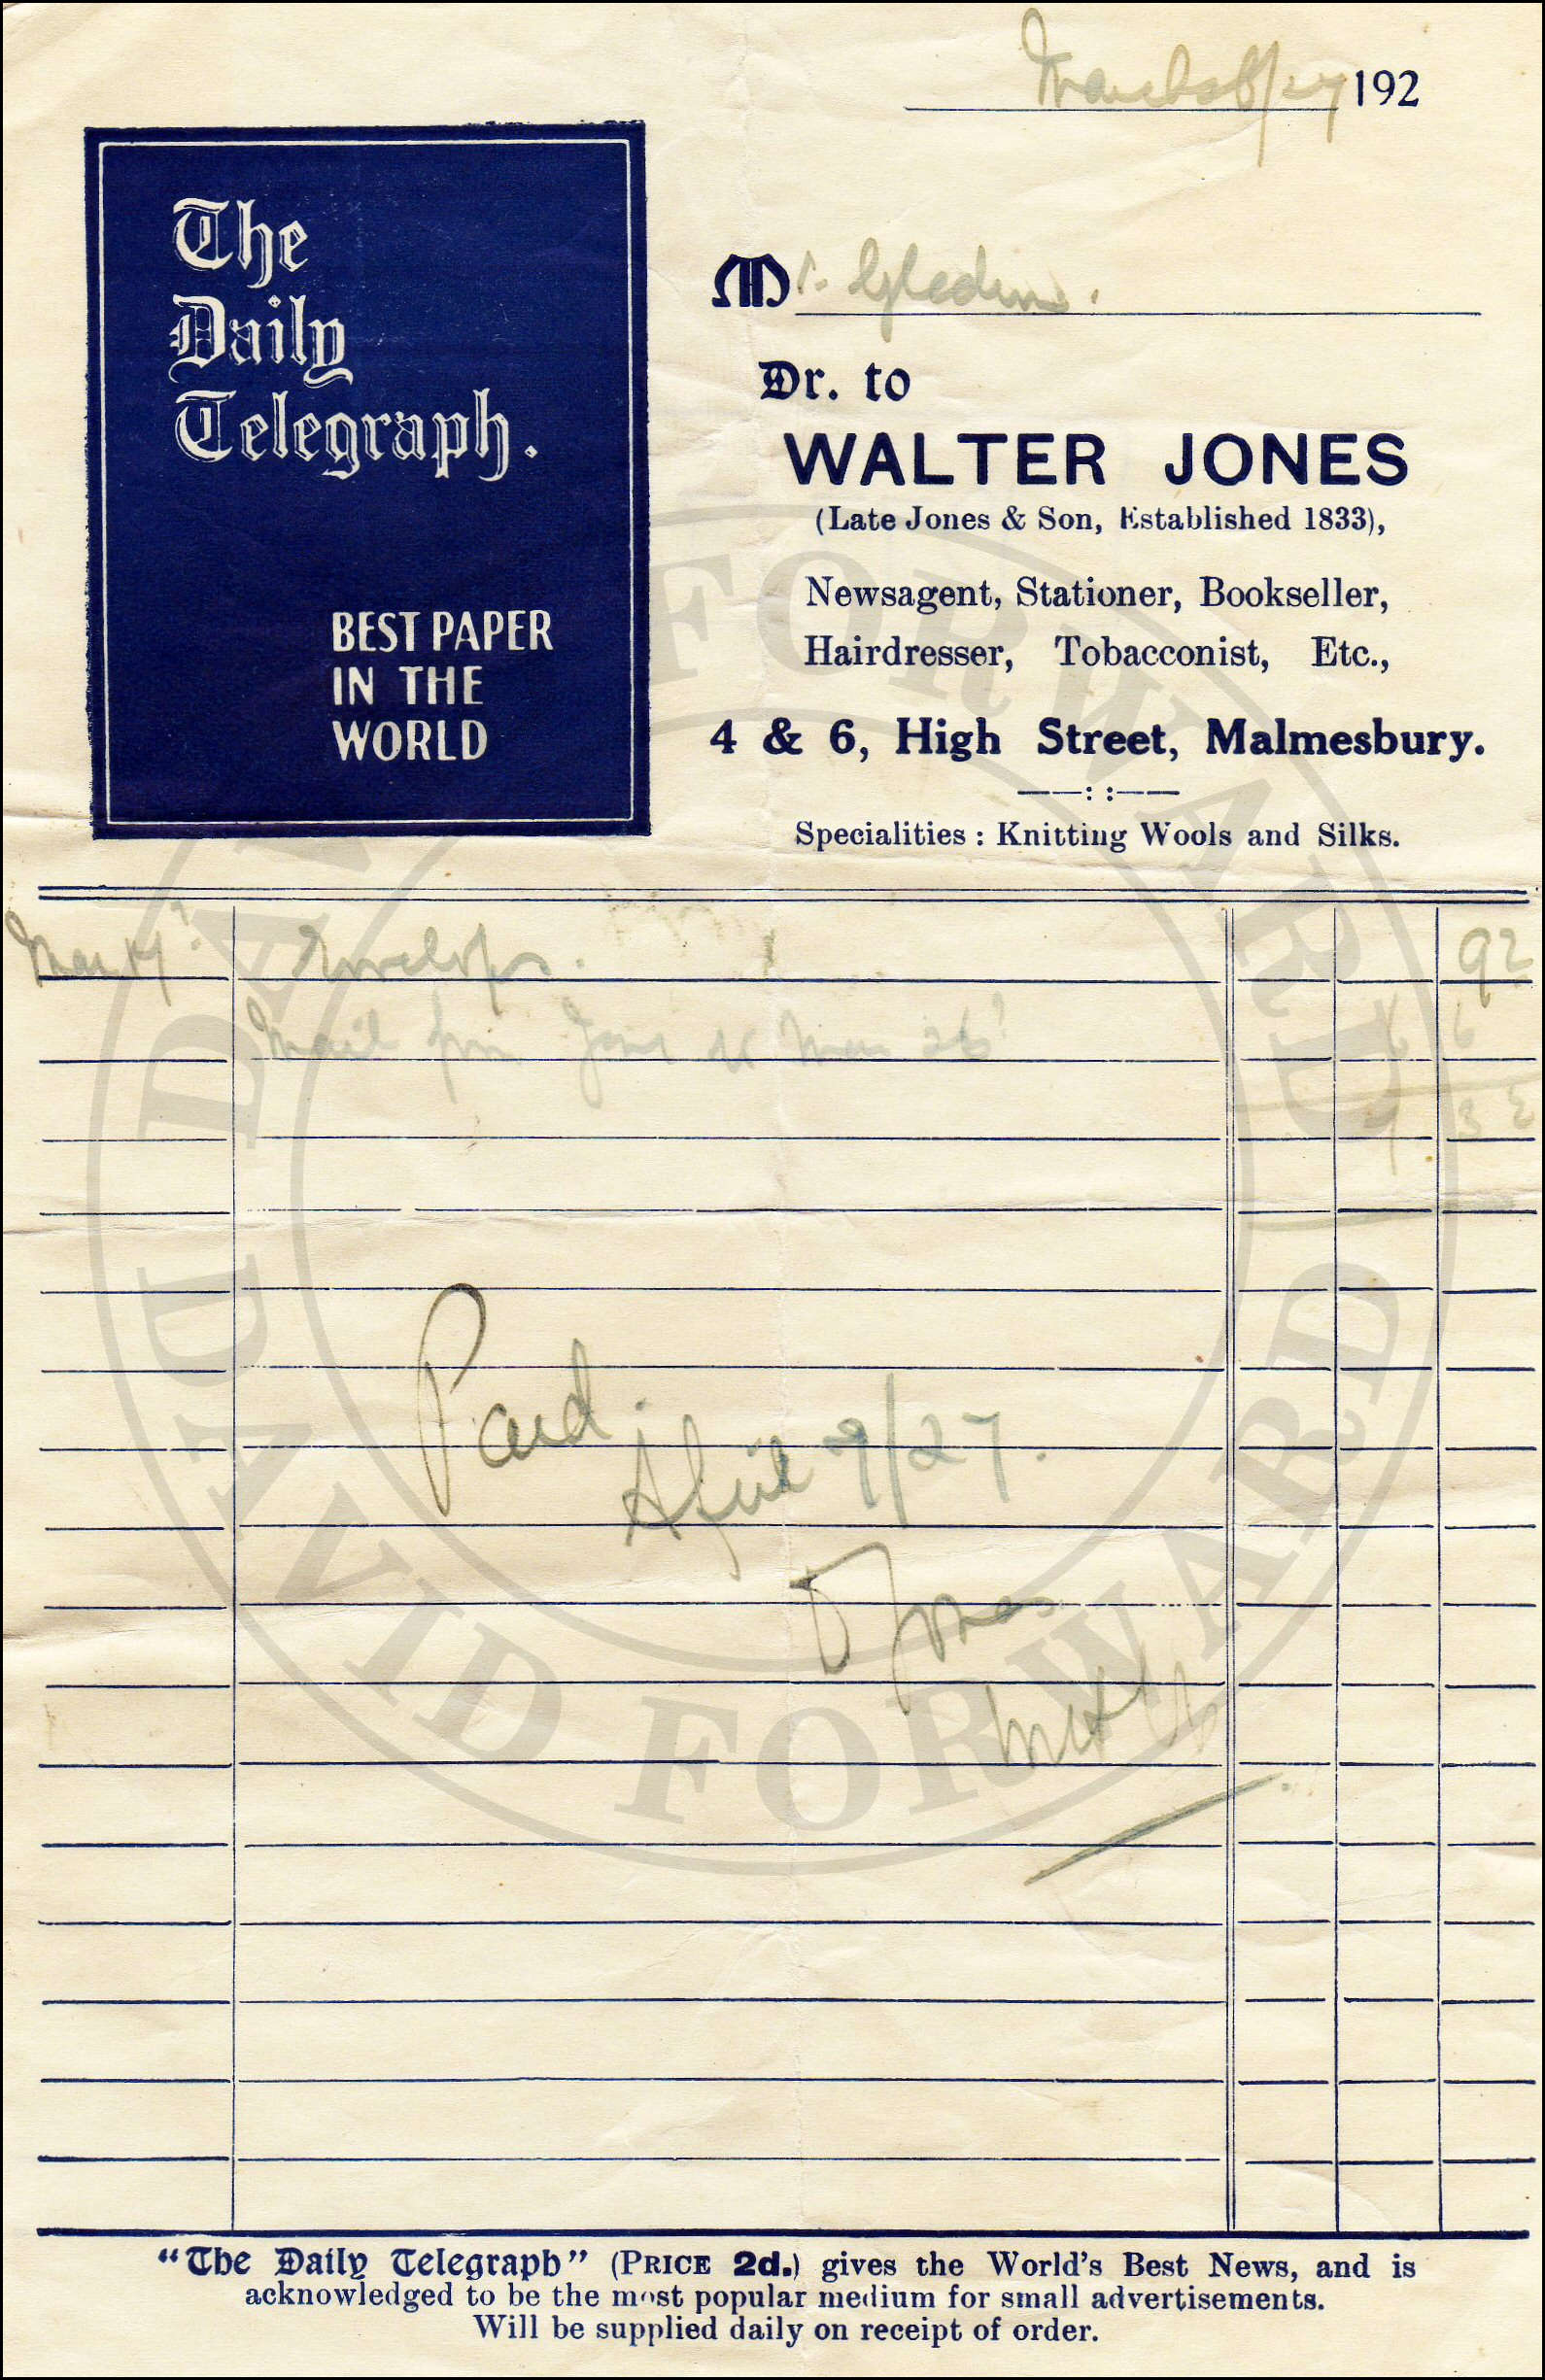 192
The
Daily
Telegraph.
BEST PAPER
IN THE
WORLD
Mr. 
Dr. to
WALTER JONES
(Late Jones & Son, Established 1833),
Newsagent, Stationer, Bookseller,
Hairdresser, Tobacconist, Etc.,
4 & 6, High Street, Malmesbury.
Specialities : Knitting Wools and Silks.
Envelops.
Mail from to Mar 26
Paid.
April 9/27.
Jones
"The Daily Telegraph" (PRICE 2d.) gives the World's Best News, and is
acknowledged to be the most popular medium for small advertisements.
Will be supplied daily on receipt of order.
DAVID FORWARD
DAVID FORWARD